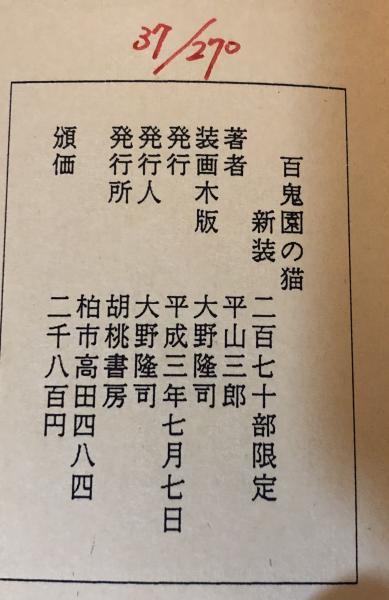 37/270
百鬼園の猫
新装 二百七十部限定
著者 平山三郎
装画木版 大野隆司
発行 平成三年七月七日
発行人 大野隆司
発行所 胡桃書房
柏市高田四八四
頒価 二千八百円